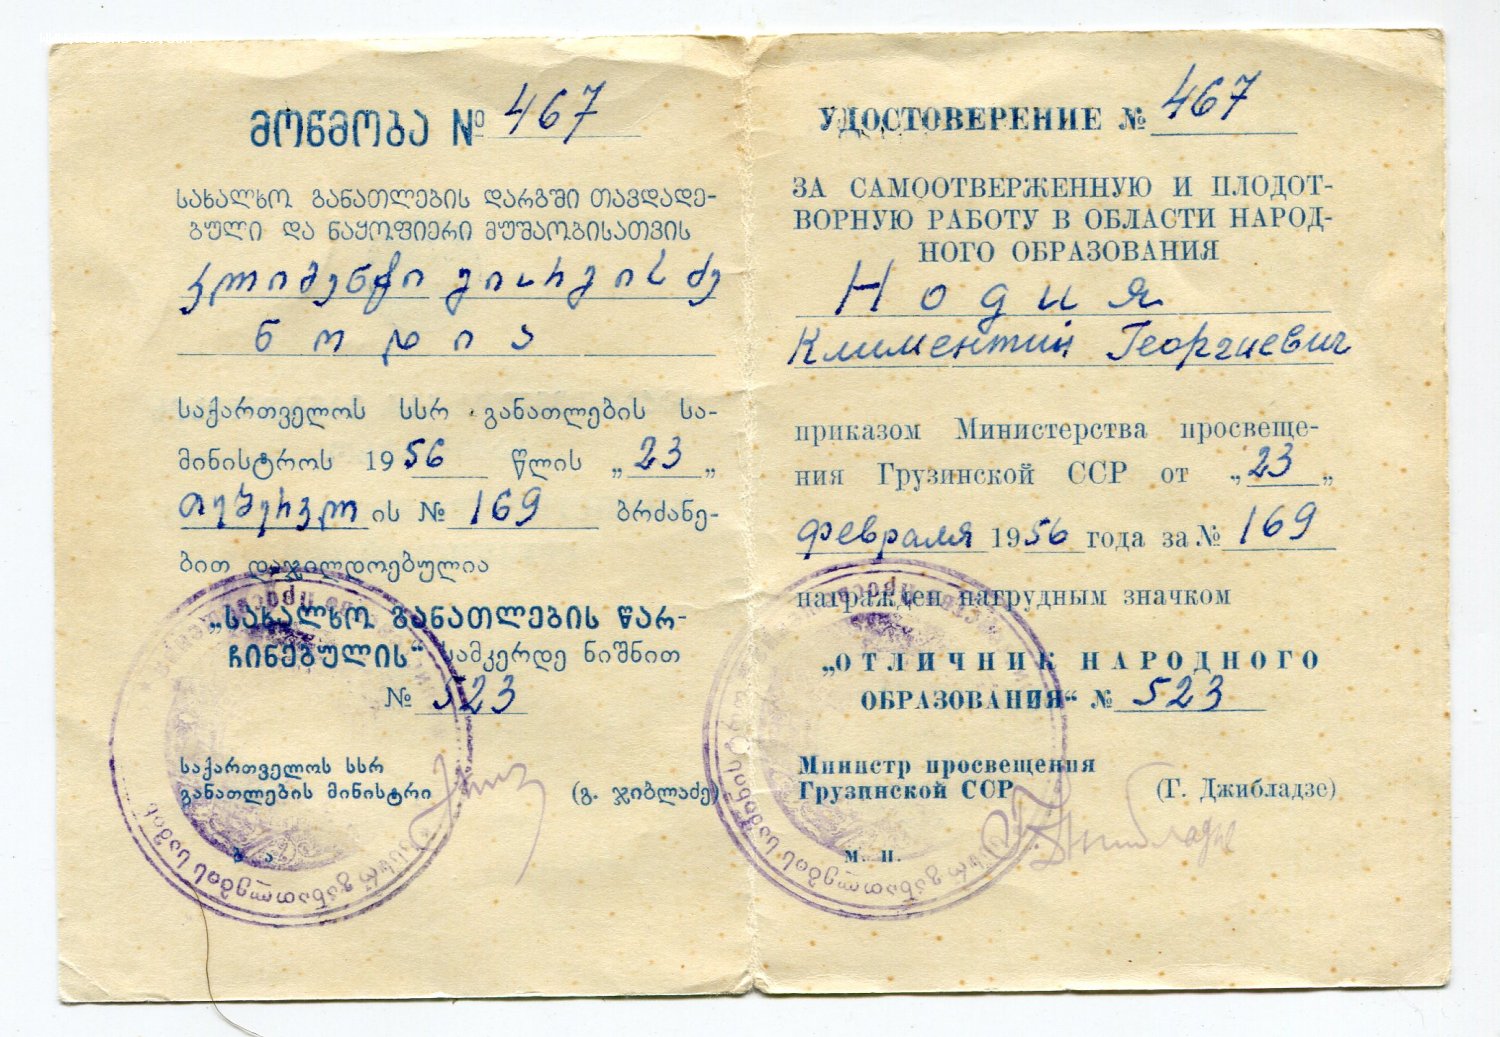 მოწმობა № 467
სახალხო განათლების დარგში თავდადე-
ბული და ნაყოფიერი მუშაობისათვის
კლიმენტი გიორგის ძე
ნოდია
საქართველოს სსრ განათლების სა-
მინისტროს 1956 წლის „23„
თებერვლ ის № 169 ბრძანე-
ბით დაჯილდოებულია
„სახალხო განათლების წარ-
ჩინებულის“ სამკერდე ნიშნით
№ 523
საქართველოს სსრ
განათლების მინისტრი (გ. ჯიბლაძე)
ბ. ა.
УДОСТОВЕРЕНИЕ № 467
ЗА САМООТВЕРЖЕННУЮ И ПЛОДОТ-
ВОРНУЮ РАБОТУ В ОБЛАСТИ НАРОД-
НОГО ОБРАЗОВАНИЯ
Нодия
Климентий Георгиевич
приказом Министерства просвеще-
ния Грузинской ССР от „23„
февраля 1956 года за № 169
награжден нагрудным значком
„ОТЛИЧНИК НАРОДНОГО
ОБРАЗОВАНИЯ“ № 523
Министр просвещения
Грузинской ССР (Г. Джибладзе)
М. П.